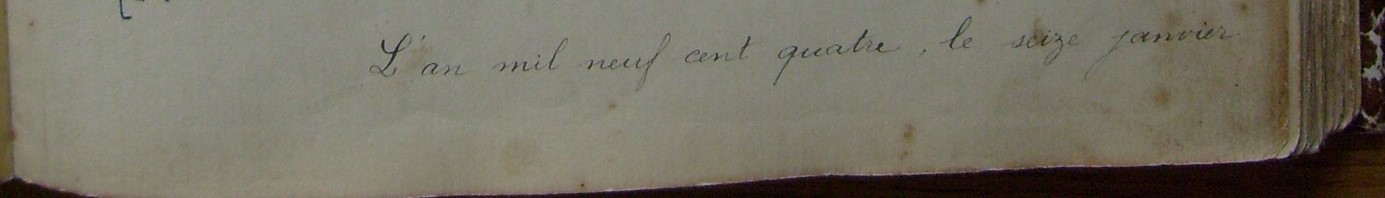 L'an mil neuf cent quatre, le seize janvier